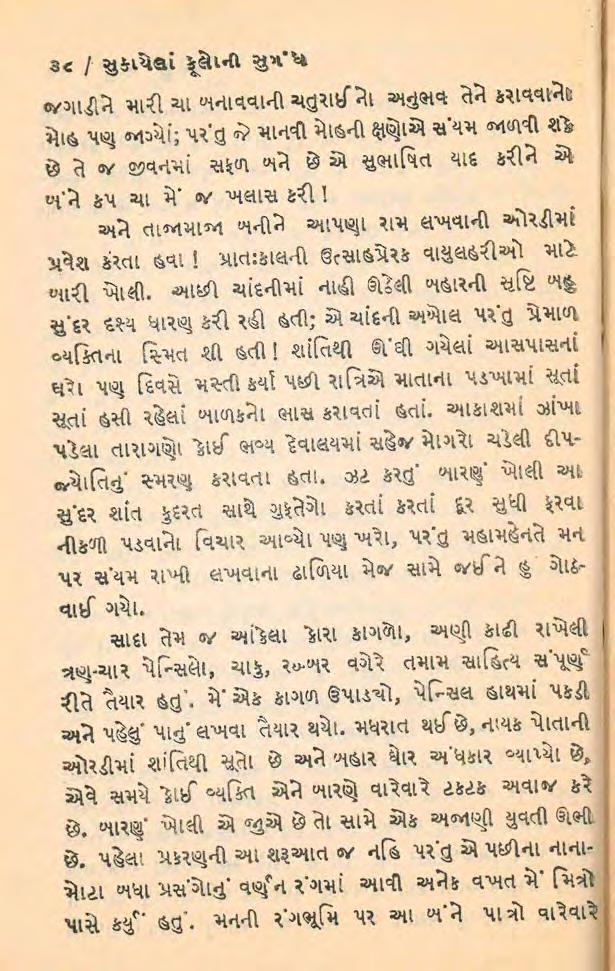 ૩૮ / સુકાયેલાં ફૂલોની સુગંધ
જગાડીને મારી ચા બનાવવાની ચતુરાઈનો અનુભવ તેને કરાવવાનો
મોહ પણ જાગ્યો; પરંતુ જે માનવી મોહની ક્ષણોએ સંયમ જાળવી શકે
છે તે જ જીવનમાં સફળ બને છે એ સુભાષિત યાદ કરીને એ
બંને કપ ચા મેં જ ખલાસ કરી !
અને તાજામાજા બનીને આપણા રામ લખવાની ઓરડીમાં
પ્રવેશ કરતા હવા ! પ્રાતઃકાલની ઉત્સાહપ્રેરક વાયુલહરીઓ માટે
બારી ખોલી. આછી ચાંદનીમાં નાહી ઊઠેલી બહારની સૃષ્ટિ બહુ
સુંદર દૃશ્ય ધારણ કરી રહી હતી; એ ચાંદની અબોલ પરંતુ પ્રેમાળ
વ્યક્તિના સ્મિત શી હતી ! શાંતિથી ઊંઘી ગયેલાં આસપાસનાં
ઘરો પણ દિવસે મસ્તી કર્યા પછી રાત્રિએ માતાના પડખામાં સૂતાં
સૂતાં હસી રહેલાં બાળકનો ભાસ કરાવતાં હતાં. આકાશમાં ઝાંખા
પડેલા તારાગણો કોઈ ભવ્ય દેવાલયમાં સહેજ મોગરો ચડેલી દીપ-
જ્યોતિનું સ્મરણ કરાવતા હતા. ઝટ કરતું બારણું ખોલી આ
સુંદર શાંત કુદરત સાથે ગુફતેગો કરતાં કરતાં દૂર સુધી ફરવા
નીકળી પડવાનો વિચાર આવ્યો પણ ખરો, પરંતુ મહામહેનતે મન
પર સંયમ રાખી લખવાના ઢાળિયા મેજ સામે જઈને હું ગોઠ-
વાઈ ગયો.
સાદા તેમ જ આંકેલા કોરા કાગળો, અણી કાઢી રાખેલી
ત્રણ-ચાર પેન્સિલો, ચાકુ, રબ્બર વગેરે તમામ સાહિત્ય સંપૂર્ણ
રીતે તૈયાર હતું. મેં એક કાગળ ઉપાડ્યો, પેન્સિલ હાથમાં પકડી
અને પહેલું પાનું લખવા તૈયાર થયો. મધરાત થઈ છે, નાયક પોતાની
ઓરડીમાં શાંતિથી સૂતો છે અને બહાર ઘોર અંધકાર વ્યાપ્યો છે,
એવે સમયે કોઈ વ્યક્તિ એને બારણે વારેવારે ટકટક અવાજ કરે
છે. બારણું ખોલી એ જુએ છે તો સામે એક અજાણી યુવતી ઊભી
છે. પહેલા પ્રકરણની આ શરૂઆત જ નહિ પરંતુ એ પછીના નાના-
મોટા બધા પ્રસંગોનું વર્ણન રંગમાં આવી અનેક વખત મેં મિત્રો
પાસે કર્યું હતું. મનની રંગભૂમિ પર આ બંને પાત્રો વારેવારે